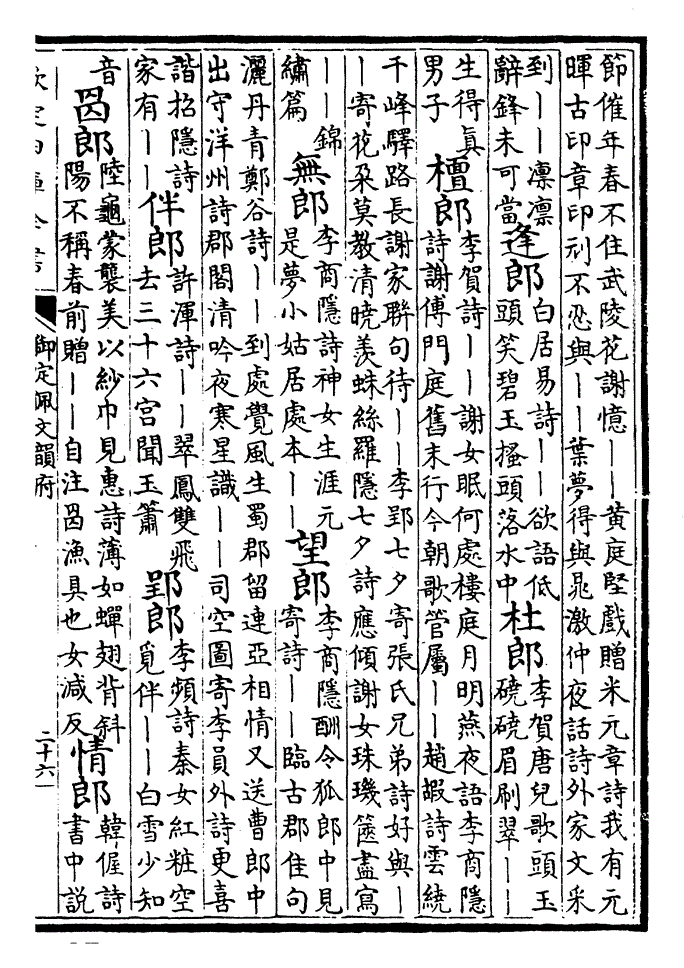 節催年春不住武陵花謝憶丨丨黄庭堅戲贈米元章詩我有元
暉古印章印刓不忍與丨丨葉夢得與晁激仲夜話詩外家文采
到丨丨凛凛
辭鋒未可當
逢郎
白居易詩丨丨欲語低
頭笑碧玉搔頭落水中
杜郎
李賀唐兒歌頭玉
磽磽眉刷翠丨丨
生得真
男子
檀郎
李賀詩丨丨謝女眠何處樓庭月明燕夜語李商隱
詩謝傅門庭舊末行今朝歌管屬丨丨趙嘏詩雲繞
千峰驛路長謝家聯句待丨丨李郢七夕寄張氏兄弟詩好與丨
丨寄花朶莫教清曉羨蛛絲羅隱七夕詩應傾謝女珠璣篋盡寫
丨丨錦
繡篇
無郎
李商隱詩神女生涯元
是夢小姑居處本丨丨
望郎
李商隱酬令狐郎中見
寄詩丨丨臨古郡佳句
灑丹青鄭谷詩丨丨到處覺風生蜀郡留連亞相情又送曹郎中
出守洋州詩郡閣清吟夜寒星識丨丨司空圖寄李員外詩更喜
諧招隱詩
家有丨丨
伴郎
許渾詩丨丨翠鳳雙飛
去三十六宫聞玉簫
郢郎
李頻詩秦女紅粧空
覓伴丨丨白雪少知
音
㘝郎
陸龜蒙襲美以紗巾見惠詩薄如蟬翅背斜
陽不稱春前贈丨丨自注㘝漁具也女減反
情郎
韓偓詩
書中説
欽定四庫全書
御定佩文韻府
二十六